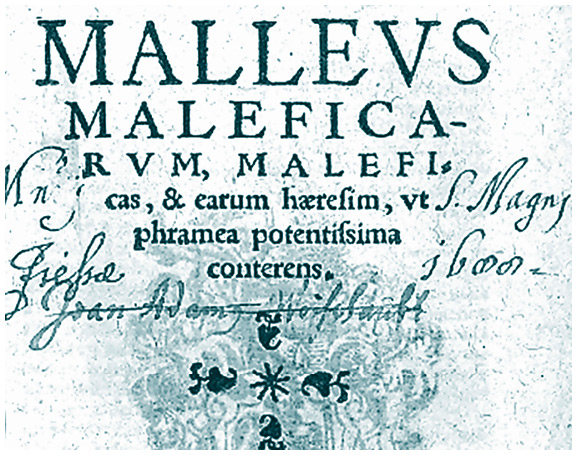 MALLEVS
MALEFICA-
RVM, MALEFI-
cas, & earum hæreſim, vt S. Magnj
phramea potentiſsima
conterens.
1600-
Joan Adam